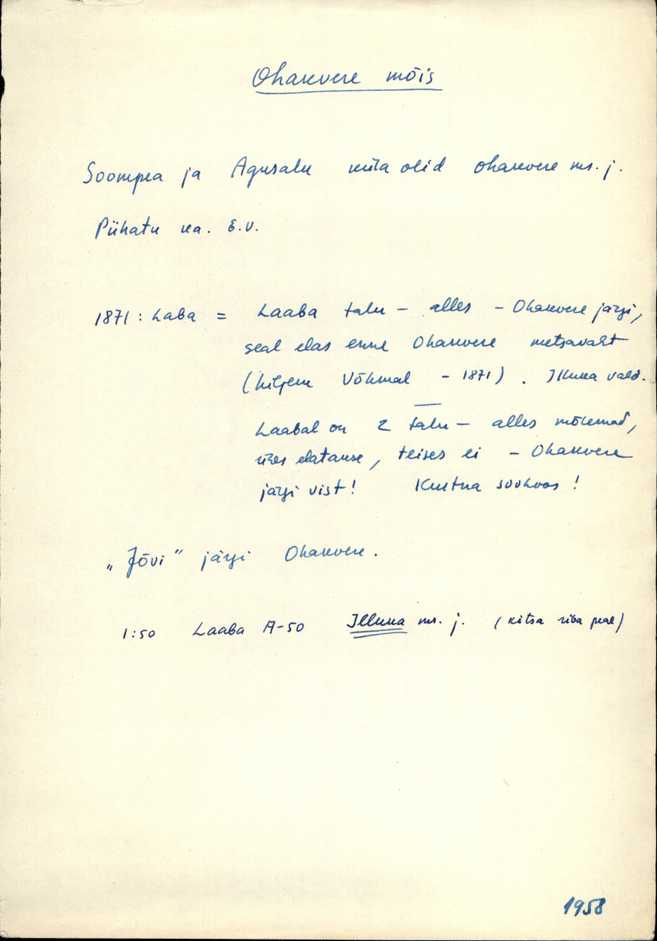 Ohakvere mõis
Soompea ja Agusalu küla olid Ohakvere ms. j.
Pühatu ka. E.V.
1871: Laba = Laaba talu - alles - Ohakvere järgi,
seal elas enne Ohakvere metsavaht
(hiljem Võhmal - 1871). Illuka vald.
Laabal on 2 talu - alles mõlemad,
ühes elatakse, teises ei - Ohakvere
järgi vist! Kurtna sovhoos!
"Jõvi" järgi Ohakvere.
1:50 Laaba A-50 Illuka ms. j. (kitsa riba peal)
1958